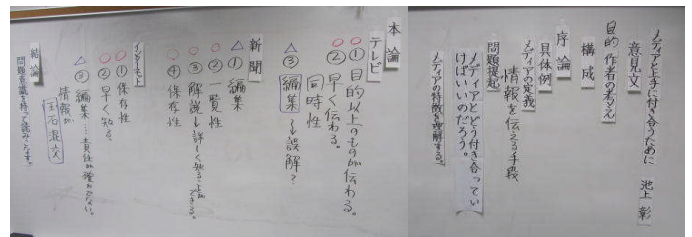 メディアと上手に付き合うために　池上 彰
意見文
目的 作者の考え
構成
序論
具体例
情報を伝える手段
メディアの定義
問題提起
メディアとどう付き合ってい
けばいいのだろう。
メディアの特徴を理解する。
本論
テレビ
○ ① 目的以上のものが伝わる。
○ ② 早く伝わる。
同時性
△ ③ 編集 → 誤解？
新聞
△ ① 編集
○ ② 一覧性
○ ③ 解説 → 詳しく知ることができる。
○ ④ 保存性
インターネット
○ ① 保存性
○ ② 早く知る。
△ ③ 編集…責任が確かでない。
情報が
玉石混交
結論
問題意識を持って読みこなす。